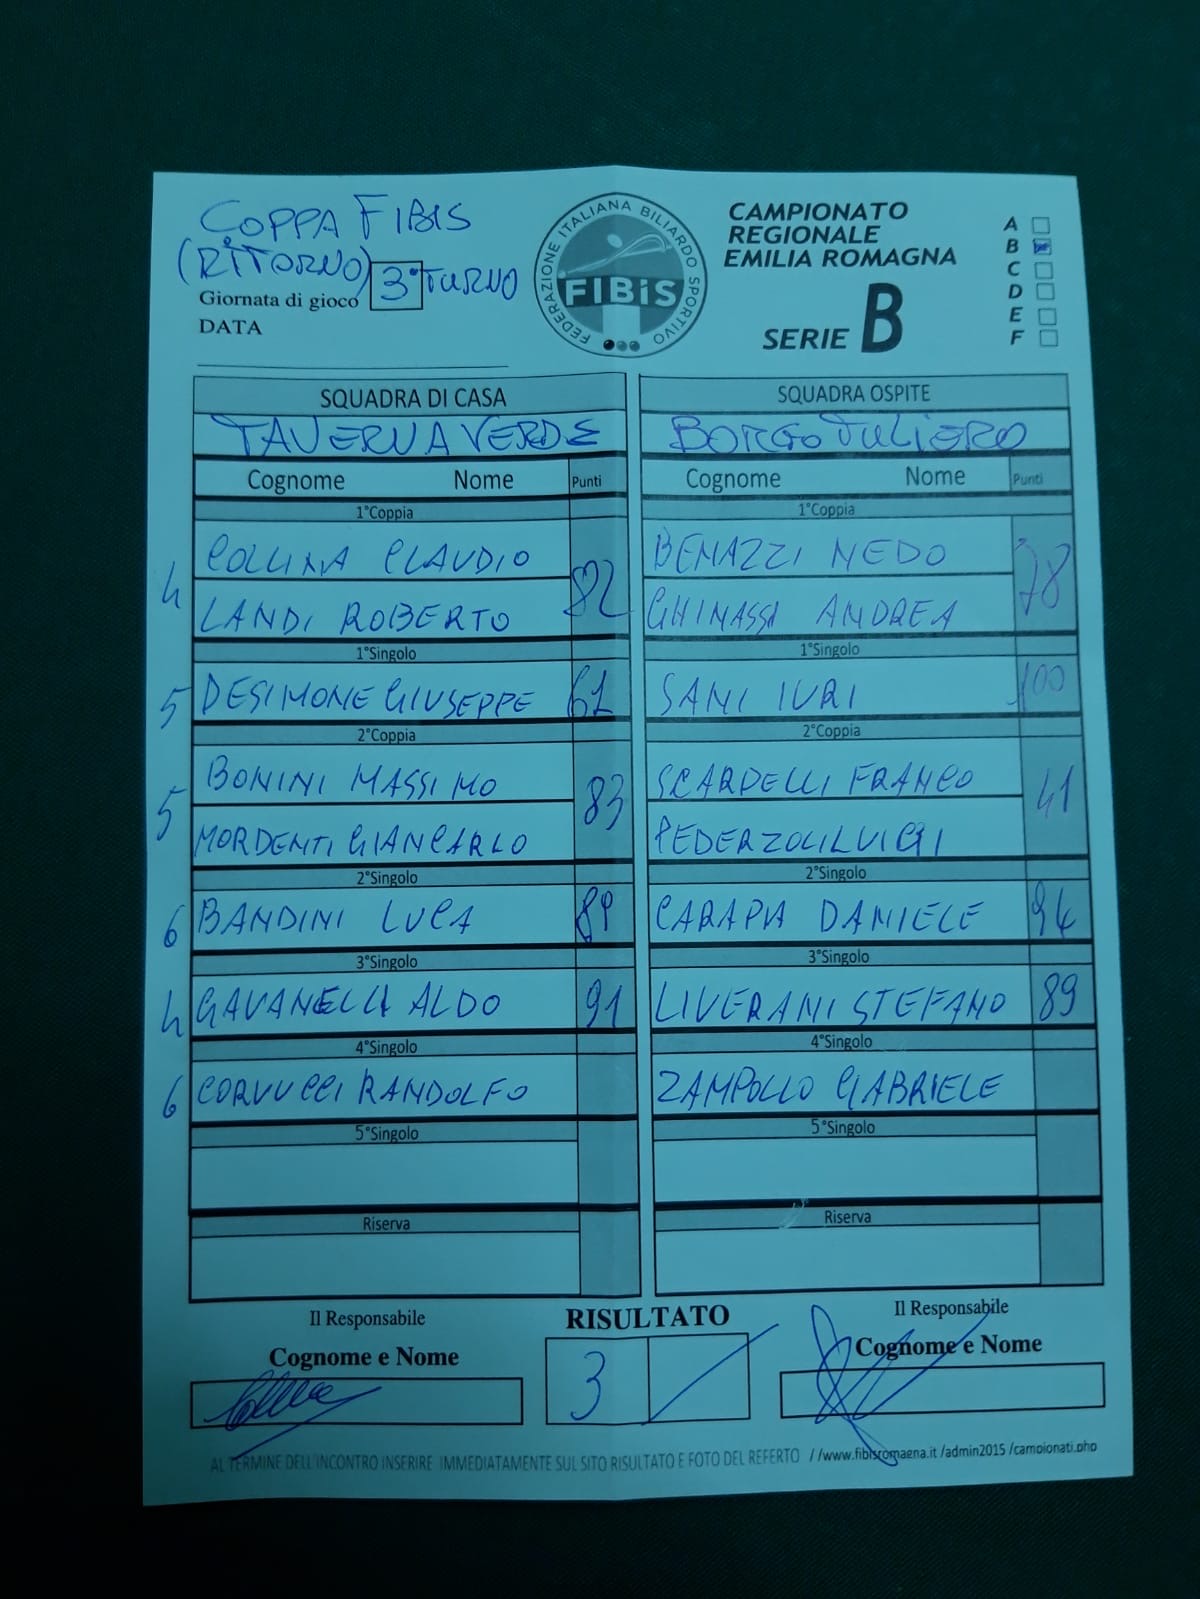 COPPA FIBIS
(RITORNO)
Giornata di gioco 3° TURNO
DATA
FEDERAZIONE ITALIANA BILIARDO SPORTIVO
FIBiS
CAMPIONATO
REGIONALE
EMILIA ROMAGNA
SERIE B
A
B
C
D
E
F
SQUADRA DI CASA SQUADRA OSPITE
TAVERNA VERDE BORGO TULIERO
Cognome Nome Punti Cognome Nome Punti
1°Coppia 1°Coppia
COLLINA CLAUDIO BENAZZI NEDO
4 82 78
LANDI ROBERTO GHINASSI ANDREA
1°Singolo 1°Singolo
5 DESIMONE GIUSEPPE 61 SAMI IURI 100
2°Coppia 2°Coppia
BONINI MASSIMO SCARDELLI FRANCO
5 83 41
MORDENTI GIANCARLO PEDERZOLI LUIGI
2°Singolo 2°Singolo
6 BANDINI LUCA 89 CARAPIA DANIELE 94
3°Singolo 3°Singolo
4 GAVANELLI ALDO 91 LIVERANI STEFANO 89
4°Singolo 4°Singolo
6 CORVUCCI RANDOLFO ZAMPOLLO GABRIELE
5°Singolo 5°Singolo
Riserva Riserva
Il Responsabile RISULTATO Il Responsabile
Cognome e Nome Cognome e Nome
3
AL TERMINE DELL'INCONTRO INSERIRE IMMEDIATAMENTE SUL SITO RISULTATO E FOTO DEL REFERTO //www.fibisromagna.it /admin2015 /campionati.php